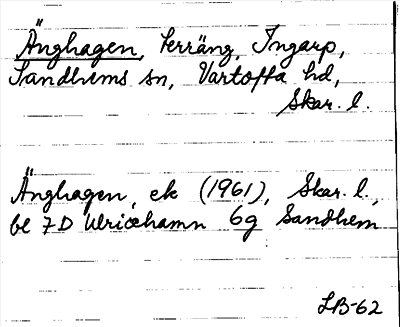 Änghagen, Terräng, Ingarp,
Sandhems sn, Vartofta hd,
Skar. l.
Änghagen, ek (1961), Skar. l.,
bl 7D Ulricehamn 6g Sandhem
LB-62